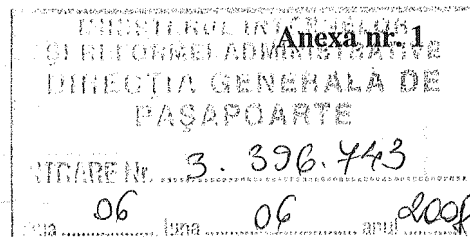 MINISTERUL INTERNELOR
ȘI REFORMEI ADMINISTRATIVE
Anexa nr. 1
DIRECȚIA GENERALĂ DE
PAȘAPOARTE
INTRARE Nr. 3.396.743
ziua 06 luna 06 anul